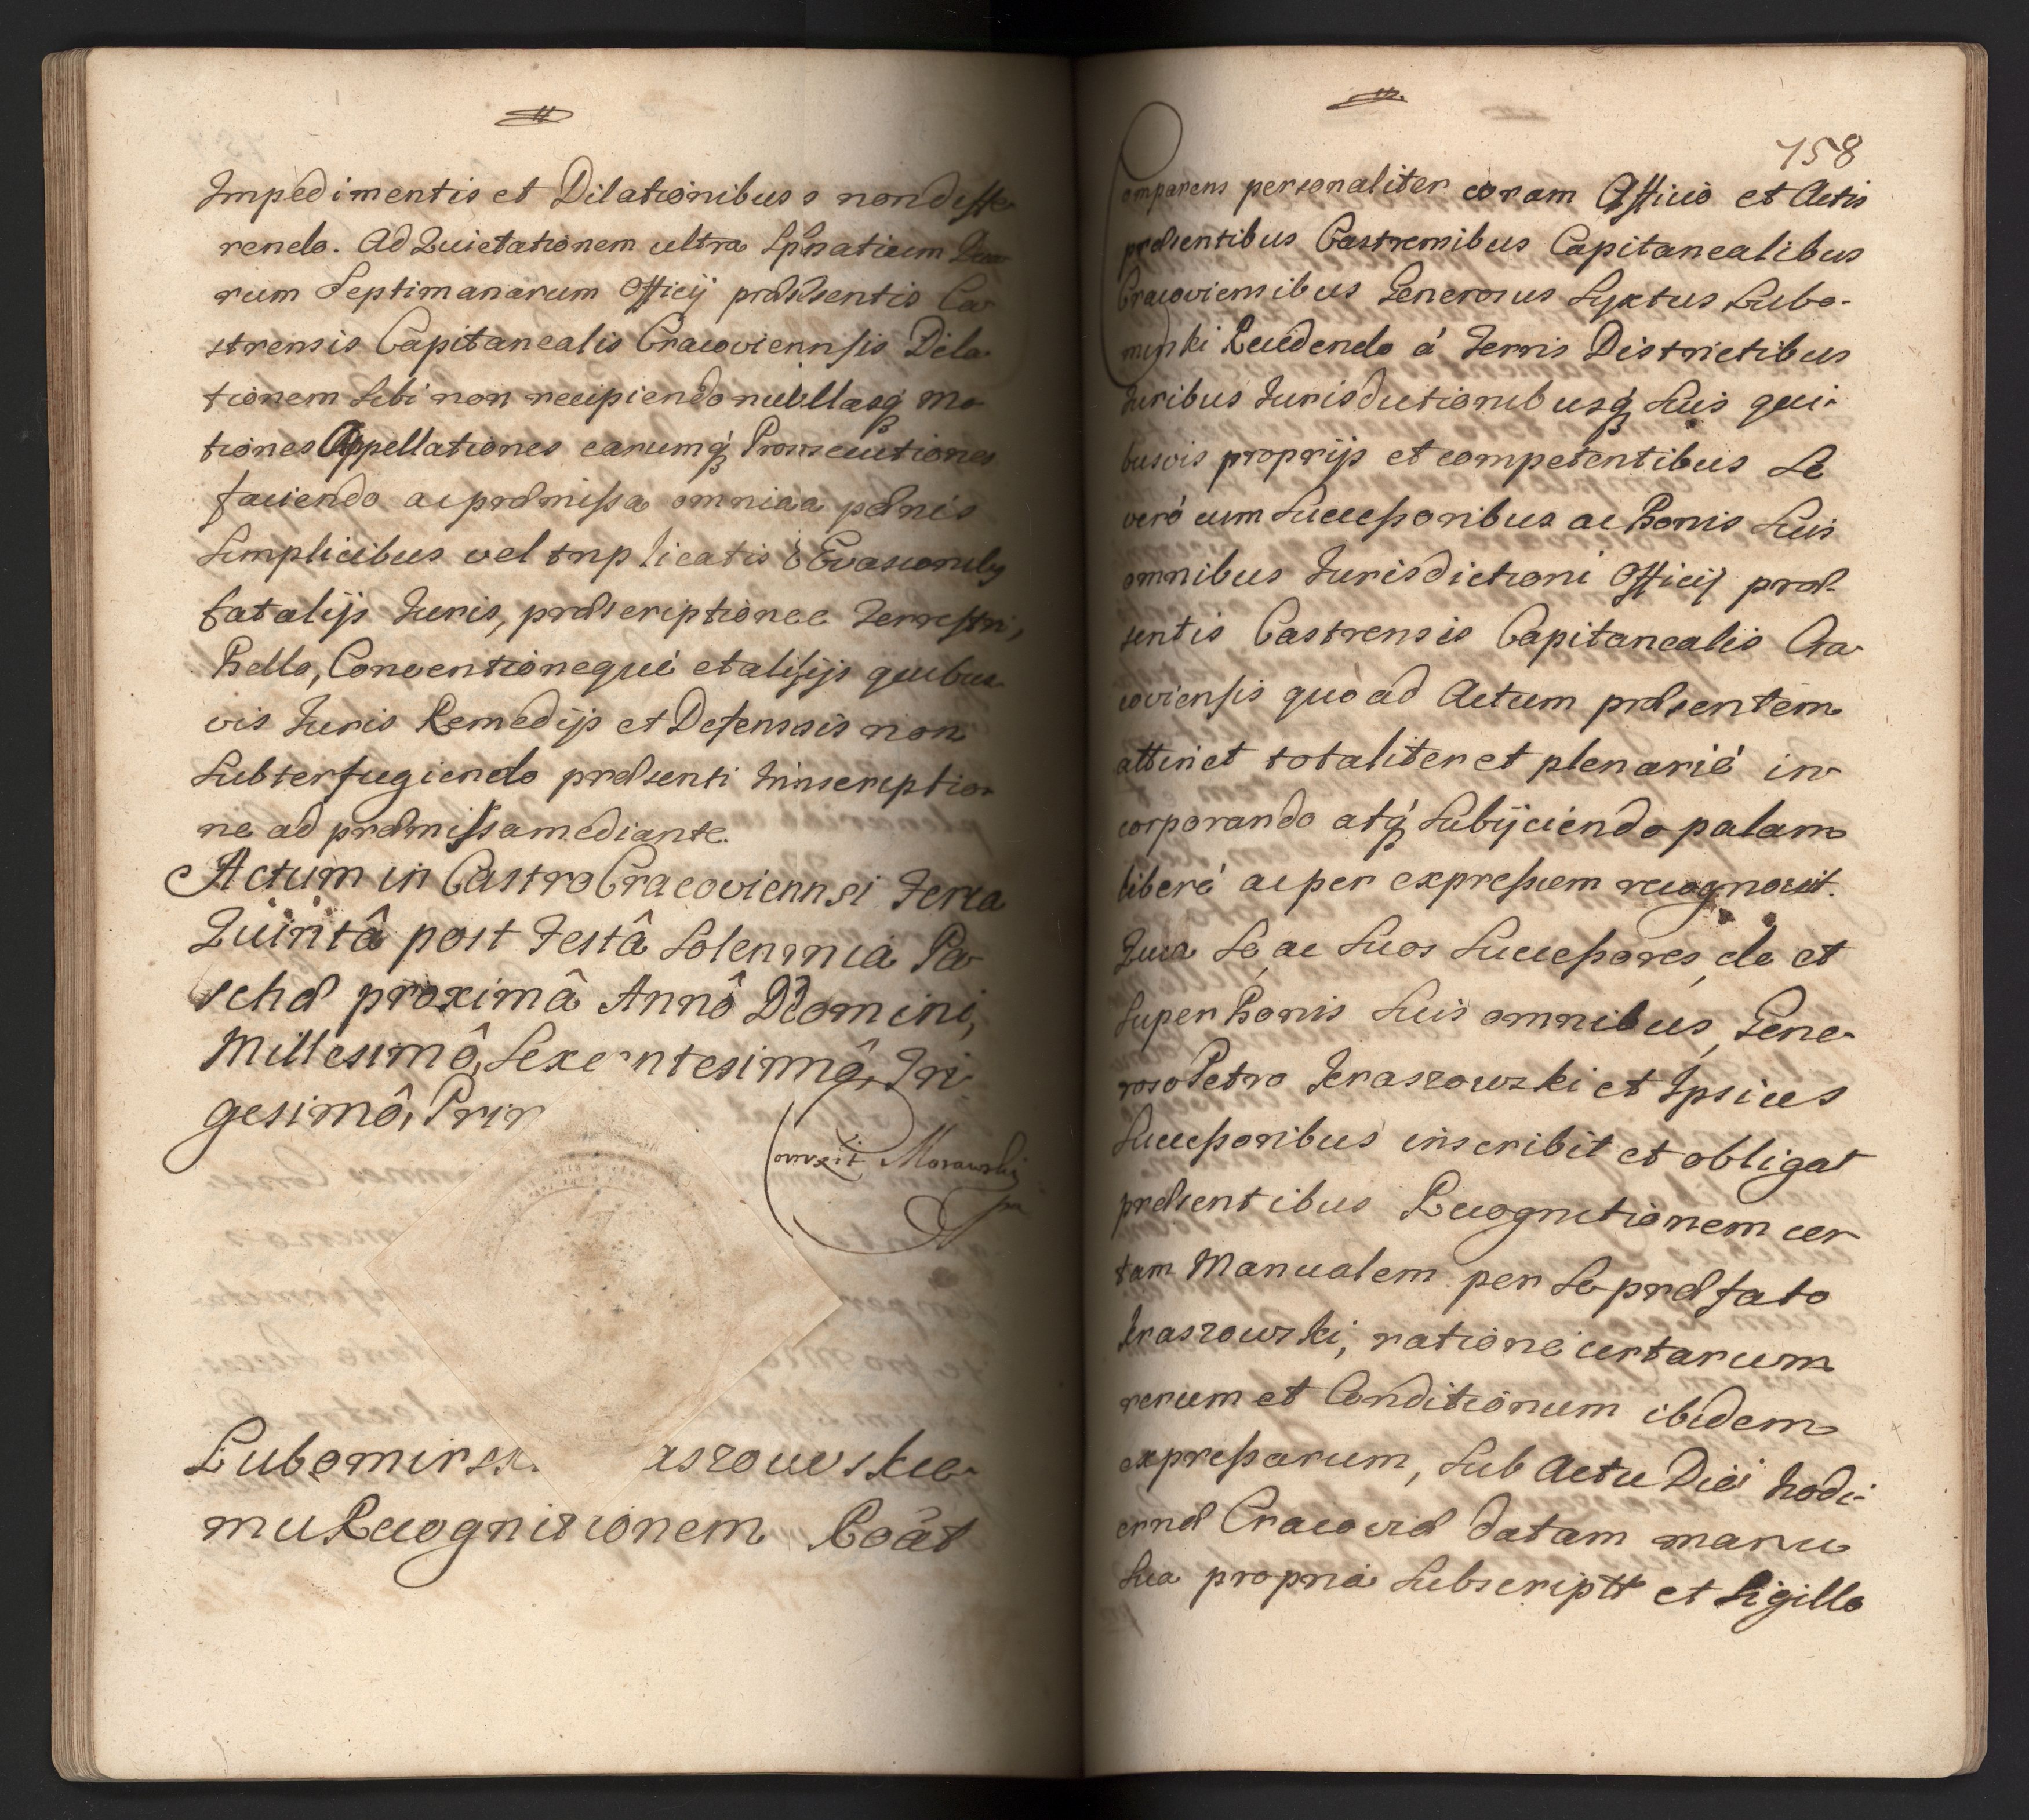 Impedimentis et Dilationibus s non diffe
rendo. Ad Quietationem ultra Spatium Dua
rum Septimanarum Officij præsentis Ca
strensis Capitanealis Cracoviennsis Dila
tionem Sibi non recipiendo nullasq́ Mo
tiones Appellationes earumq́ Prosecutiones
faciendo ac præmissa omniaa pænis
Simplicibus vel triplicatis Evasionib9
fatalijs Juris, præscriptionee Terrestri,
Bello, Conventioneque et alijs quibus
vis Juris Remedijs et Defensais non
Subterfugiendo præsenti Innscriptio
ne ad præmissa mediante.
Actum in Castro Cracoviennsi Feria
Quintâ post Festâ Solennia Pa
schæ proximâ Annô Domini,
Millesimô, Sexcentesimô, Tri
gesimô, Prim
Correxit Morawski
mp
Lubomirsk aszowskie
mu Recognitionem Roât
158
Comparens personaliter coram Officio et Actis
præsentibus Castrensibus Capitanealibus
Cracoviensibus Generosus Syxtus Lubo-
mirski Recedendo á Terris Districtibus
Juribus Jurisdictionibusq́ Suis qui-
busvis proprijs et competentibus Se
veró cum Successoribus ac Bonis Suis
omnibus Jurisdictioni Officij præ-
sentis Castrensis Capitanealis Cra
coviensis quò ad Actum præsentem
attinet totaliter et plenarié in
corporando atq́ Subijciendo palam
liberé ac per expressum recognovit.
Quia Se ac Suos Successores, de et
Super Bonis Suis omnibus, Gene-
roso Petro Jeraszowski et Ipsius
Successoribus inscribit et obligat
præsentibus Recognitionem cer
tam Manualem per Se præfato
Jeraszowski, ratione certarum
rerum et Conditionum ibidem
expressarum, Sub Actu Diei hodi-
ernæ Cracoviæ datam manu
Sua propria Subscriptt et Sigillo